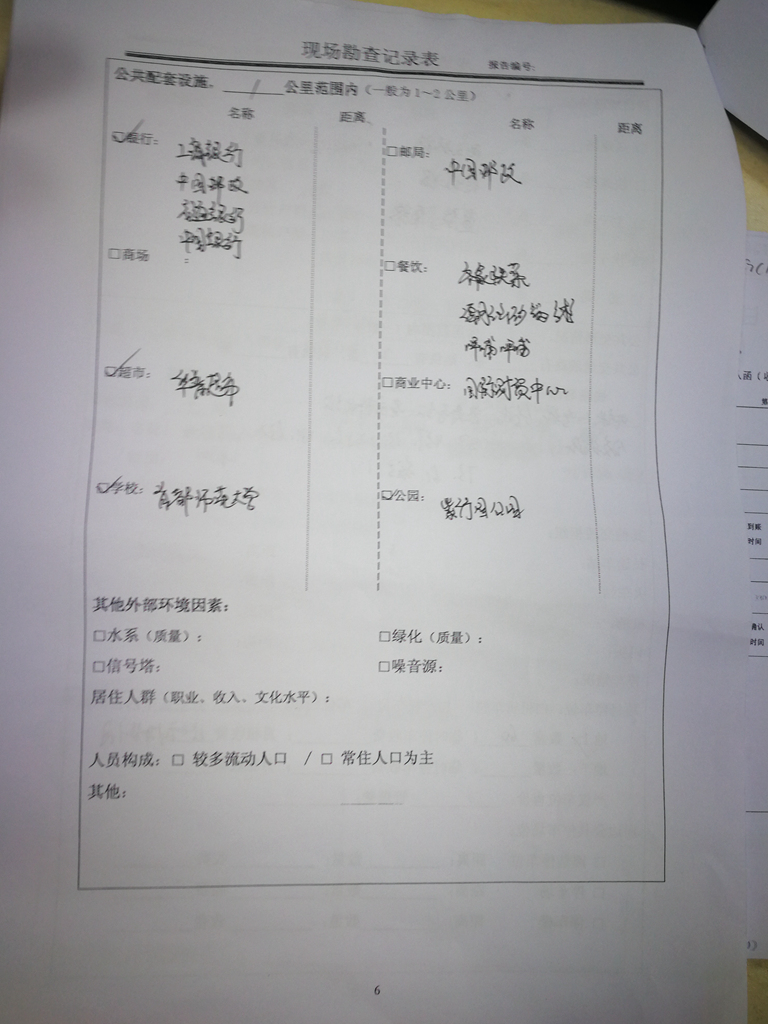 现场勘查记录表
报告编号:
公共配套设施。 / 公里范围内（一般为1~2公里）
名称 距离 名称 距离
☑银行: 工商银行 □邮局: 中国邮政
中国邮政
交通银行
中国银行
□商场 : □餐饮:
呷哺呷哺
☑超市: 华普超市 □商业中心: 国际财贸中心
☑学校: 首都师范大学 ☑公园: 紫竹园公园
其他外部环境因素:
□水系（质量）: □绿化（质量）:
□信号塔: □噪音源:
居住人群（职业、收入、文化水平）:
人员构成: □ 较多流动人口 / □ 常住人口为主
其他:
6
到账
时间
确认
时间